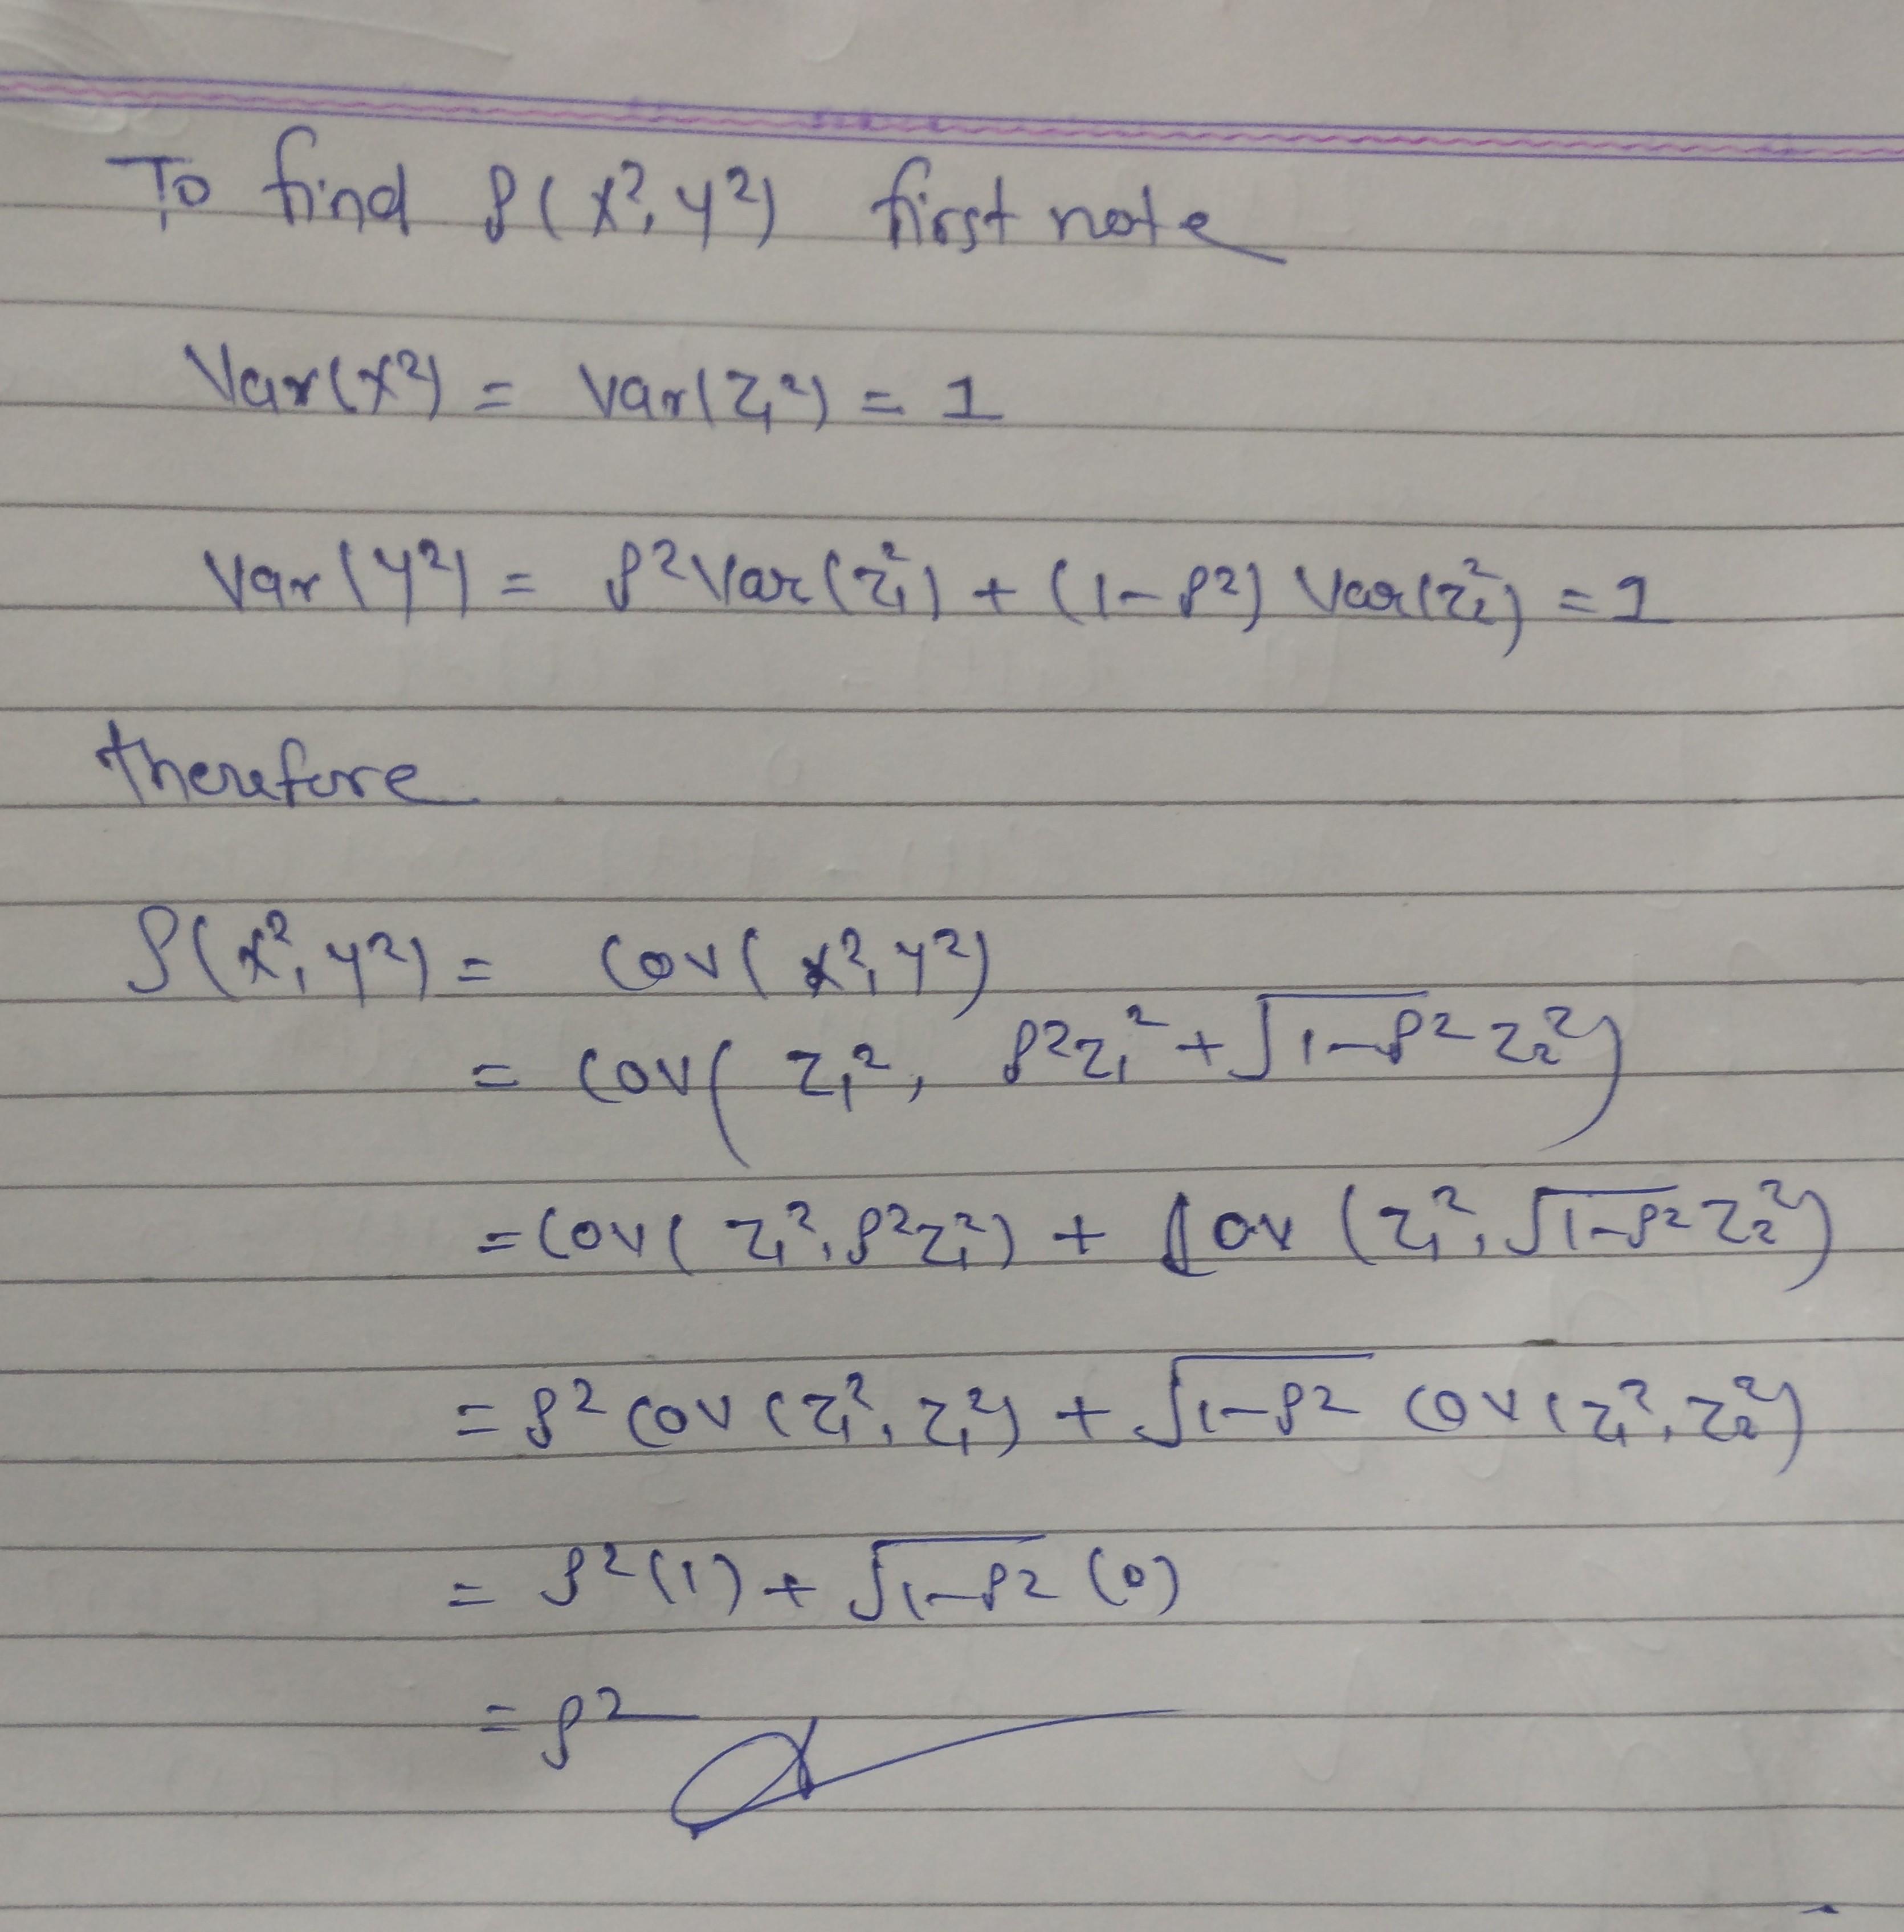 To find ρ(x², y²) first note
Var(x²) = Var(Z₁²) = 1
Var(y²) = ρ² Var(Z₁²) + (1-ρ²) Var(Z₂²) = 1
therefore
ρ(x², y²) = Cov(x², y²)
= Cov(Z₁², ρ²Z₁² + √1-ρ² Z₂²)
= Cov(Z₁², ρ²Z₁²) + Cov(Z₁², √1-ρ² Z₂²)
= ρ² Cov(Z₁², Z₁²) + √1-ρ² Cov(Z₁², Z₂²)
= ρ²(1) + √1-ρ² (0)
= ρ²